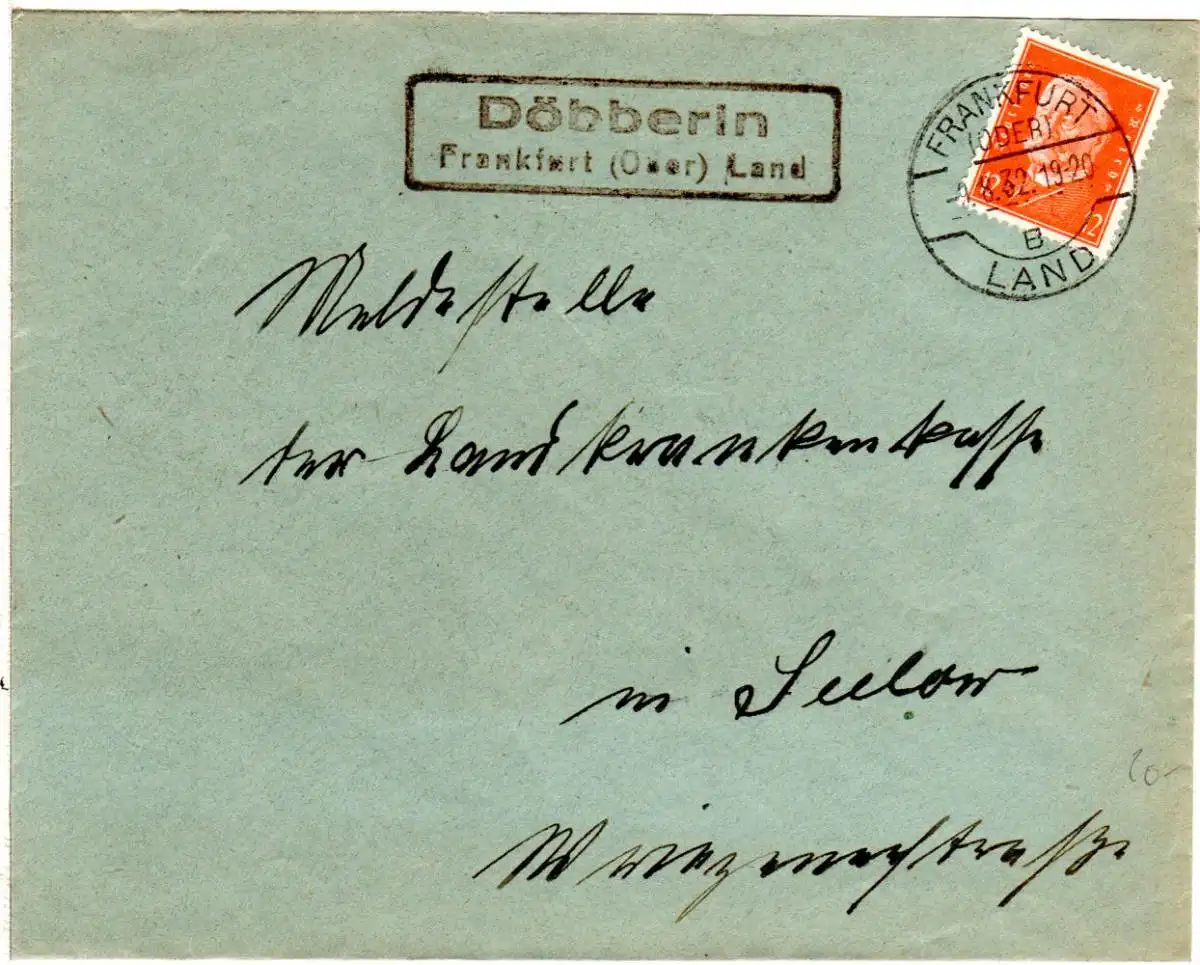 Döbberin
Frankfurt (Oder) Land
FRANKFURT
(ODER)
8.32.19-20
B
LAND
12
12
Meldestelle
der Landkrankenkasse
in Seelow